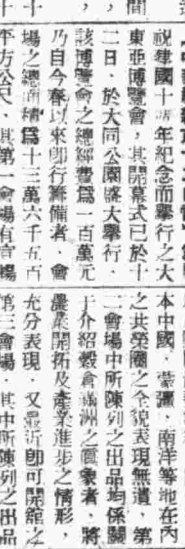 祝建國十週年紀念而擧行之大
東亞博覽會，其開幕式已於十
二日，於大同公園盛大擧行．
該博覽會之總經費爲一百萬元
乃自今春以來卽行籌備者，會
場之總面積爲十三萬六千五百
平方公尺，其第一會場有首
本中國，蒙疆，南洋等地在內
之共榮圈之全貌表現無遺，第
二會場中所陳列之出品均係關
于介紹穀倉滿洲之眞象者，將
農業開拓及產業進步之情形，
充分表現．又最近卽可開館之
第三會場，其中所陳列之出品